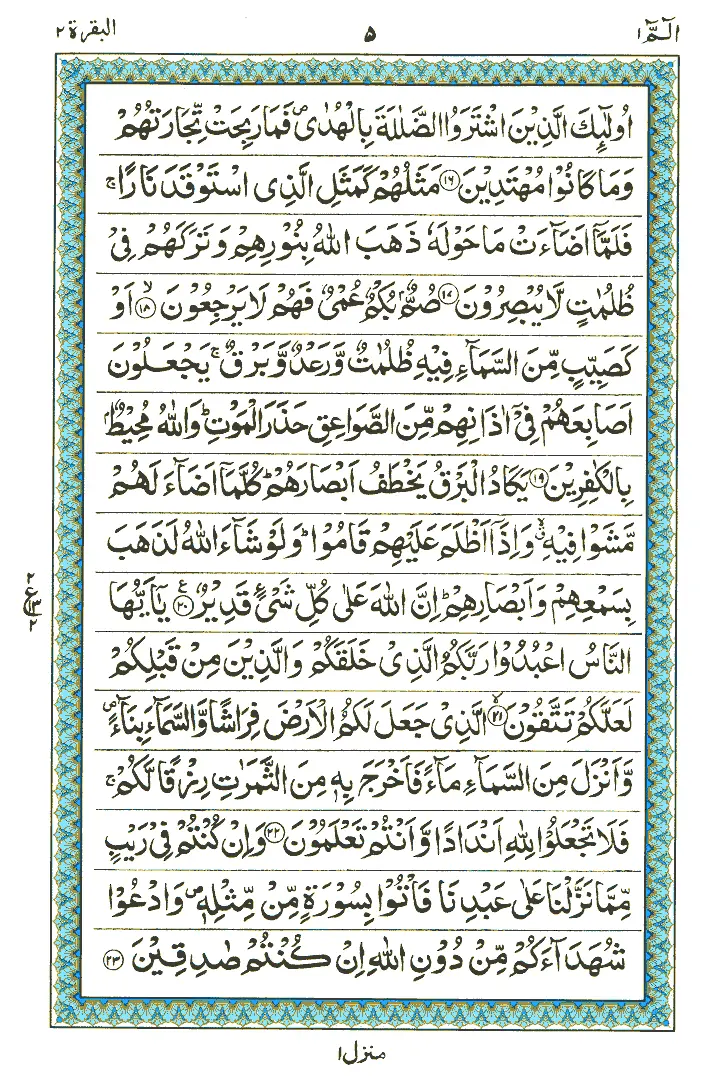 الٓمّٓ ١ ٥ البقرة ٢
اُولٰٓئِكَ الَّذِيْنَ اشْتَرَوُا الضَّلٰلَةَ بِالْهُدٰى ۪ فَمَا رَبِحَتْ تِّجَارَتُهُمْ
وَمَا كَانُوْا مُهْتَدِيْنَ ﴿١٦﴾ مَثَلُهُمْ كَمَثَلِ الَّذِى اسْتَوْقَدَ نَارًا ۚ
فَلَمَّآ اَضَآءَتْ مَا حَوْلَهٗ ذَهَبَ اللّٰهُ بِنُوْرِهِمْ وَتَرَكَهُمْ فِىْ
ظُلُمٰتٍ لَّا يُبْصِرُوْنَ ﴿١٧﴾ صُمٌّۢ بُكْمٌ عُمْىٌ فَهُمْ لَا يَرْجِعُوْنَ ۙ﴿١٨﴾ اَوْ
كَصَيِّبٍ مِّنَ السَّمَآءِ فِيْهِ ظُلُمٰتٌ وَّرَعْدٌ وَّبَرْقٌ ۚ يَجْعَلُوْنَ
اَصَابِعَهُمْ فِىْٓ اٰذَانِهِمْ مِّنَ الصَّوَاعِقِ حَذَرَ الْمَوْتِ ؕ وَاللّٰهُ مُحِيْطٌۢ
بِالْكٰفِرِيْنَ ﴿١٩﴾ يَكَادُ الْبَرْقُ يَخْطَفُ اَبْصَارَهُمْ ؕ كُلَّمَآ اَضَآءَ لَهُمْ
مَّشَوْا فِيْهِ ۙ وَاِذَآ اَظْلَمَ عَلَيْهِمْ قَامُوْا ؕ وَلَوْ شَآءَ اللّٰهُ لَذَهَبَ
بِسَمْعِهِمْ وَاَبْصَارِهِمْ ؕ اِنَّ اللّٰهَ عَلٰى كُلِّ شَىْءٍ قَدِيْرٌ ﴿٢٠﴾ يٰٓاَيُّهَا
النَّاسُ اعْبُدُوْا رَبَّكُمُ الَّذِىْ خَلَقَكُمْ وَالَّذِيْنَ مِنْ قَبْلِكُمْ
لَعَلَّكُمْ تَتَّقُوْنَ ۙ﴿٢١﴾ الَّذِىْ جَعَلَ لَكُمُ الْاَرْضَ فِرَاشًا وَّالسَّمَآءَ بِنَآءً ۪
وَّاَنْزَلَ مِنَ السَّمَآءِ مَآءً فَاَخْرَجَ بِهٖ مِنَ الثَّمَرٰتِ رِزْقًا لَّكُمْ ۚ
فَلَا تَجْعَلُوْا لِلّٰهِ اَنْدَادًا وَّاَنْتُمْ تَعْلَمُوْنَ ﴿٢٢﴾ وَاِنْ كُنْتُمْ فِىْ رَيْبٍ
مِّمَّا نَزَّلْنَا عَلٰى عَبْدِنَا فَاْتُوْا بِسُوْرَةٍ مِّنْ مِّثْلِهٖ ۪ وَادْعُوْا
شُهَدَآءَكُمْ مِّنْ دُوْنِ اللّٰهِ اِنْ كُنْتُمْ صٰدِقِيْنَ ﴿٢٣﴾
٢
ع ١٣
٢
منزل ١